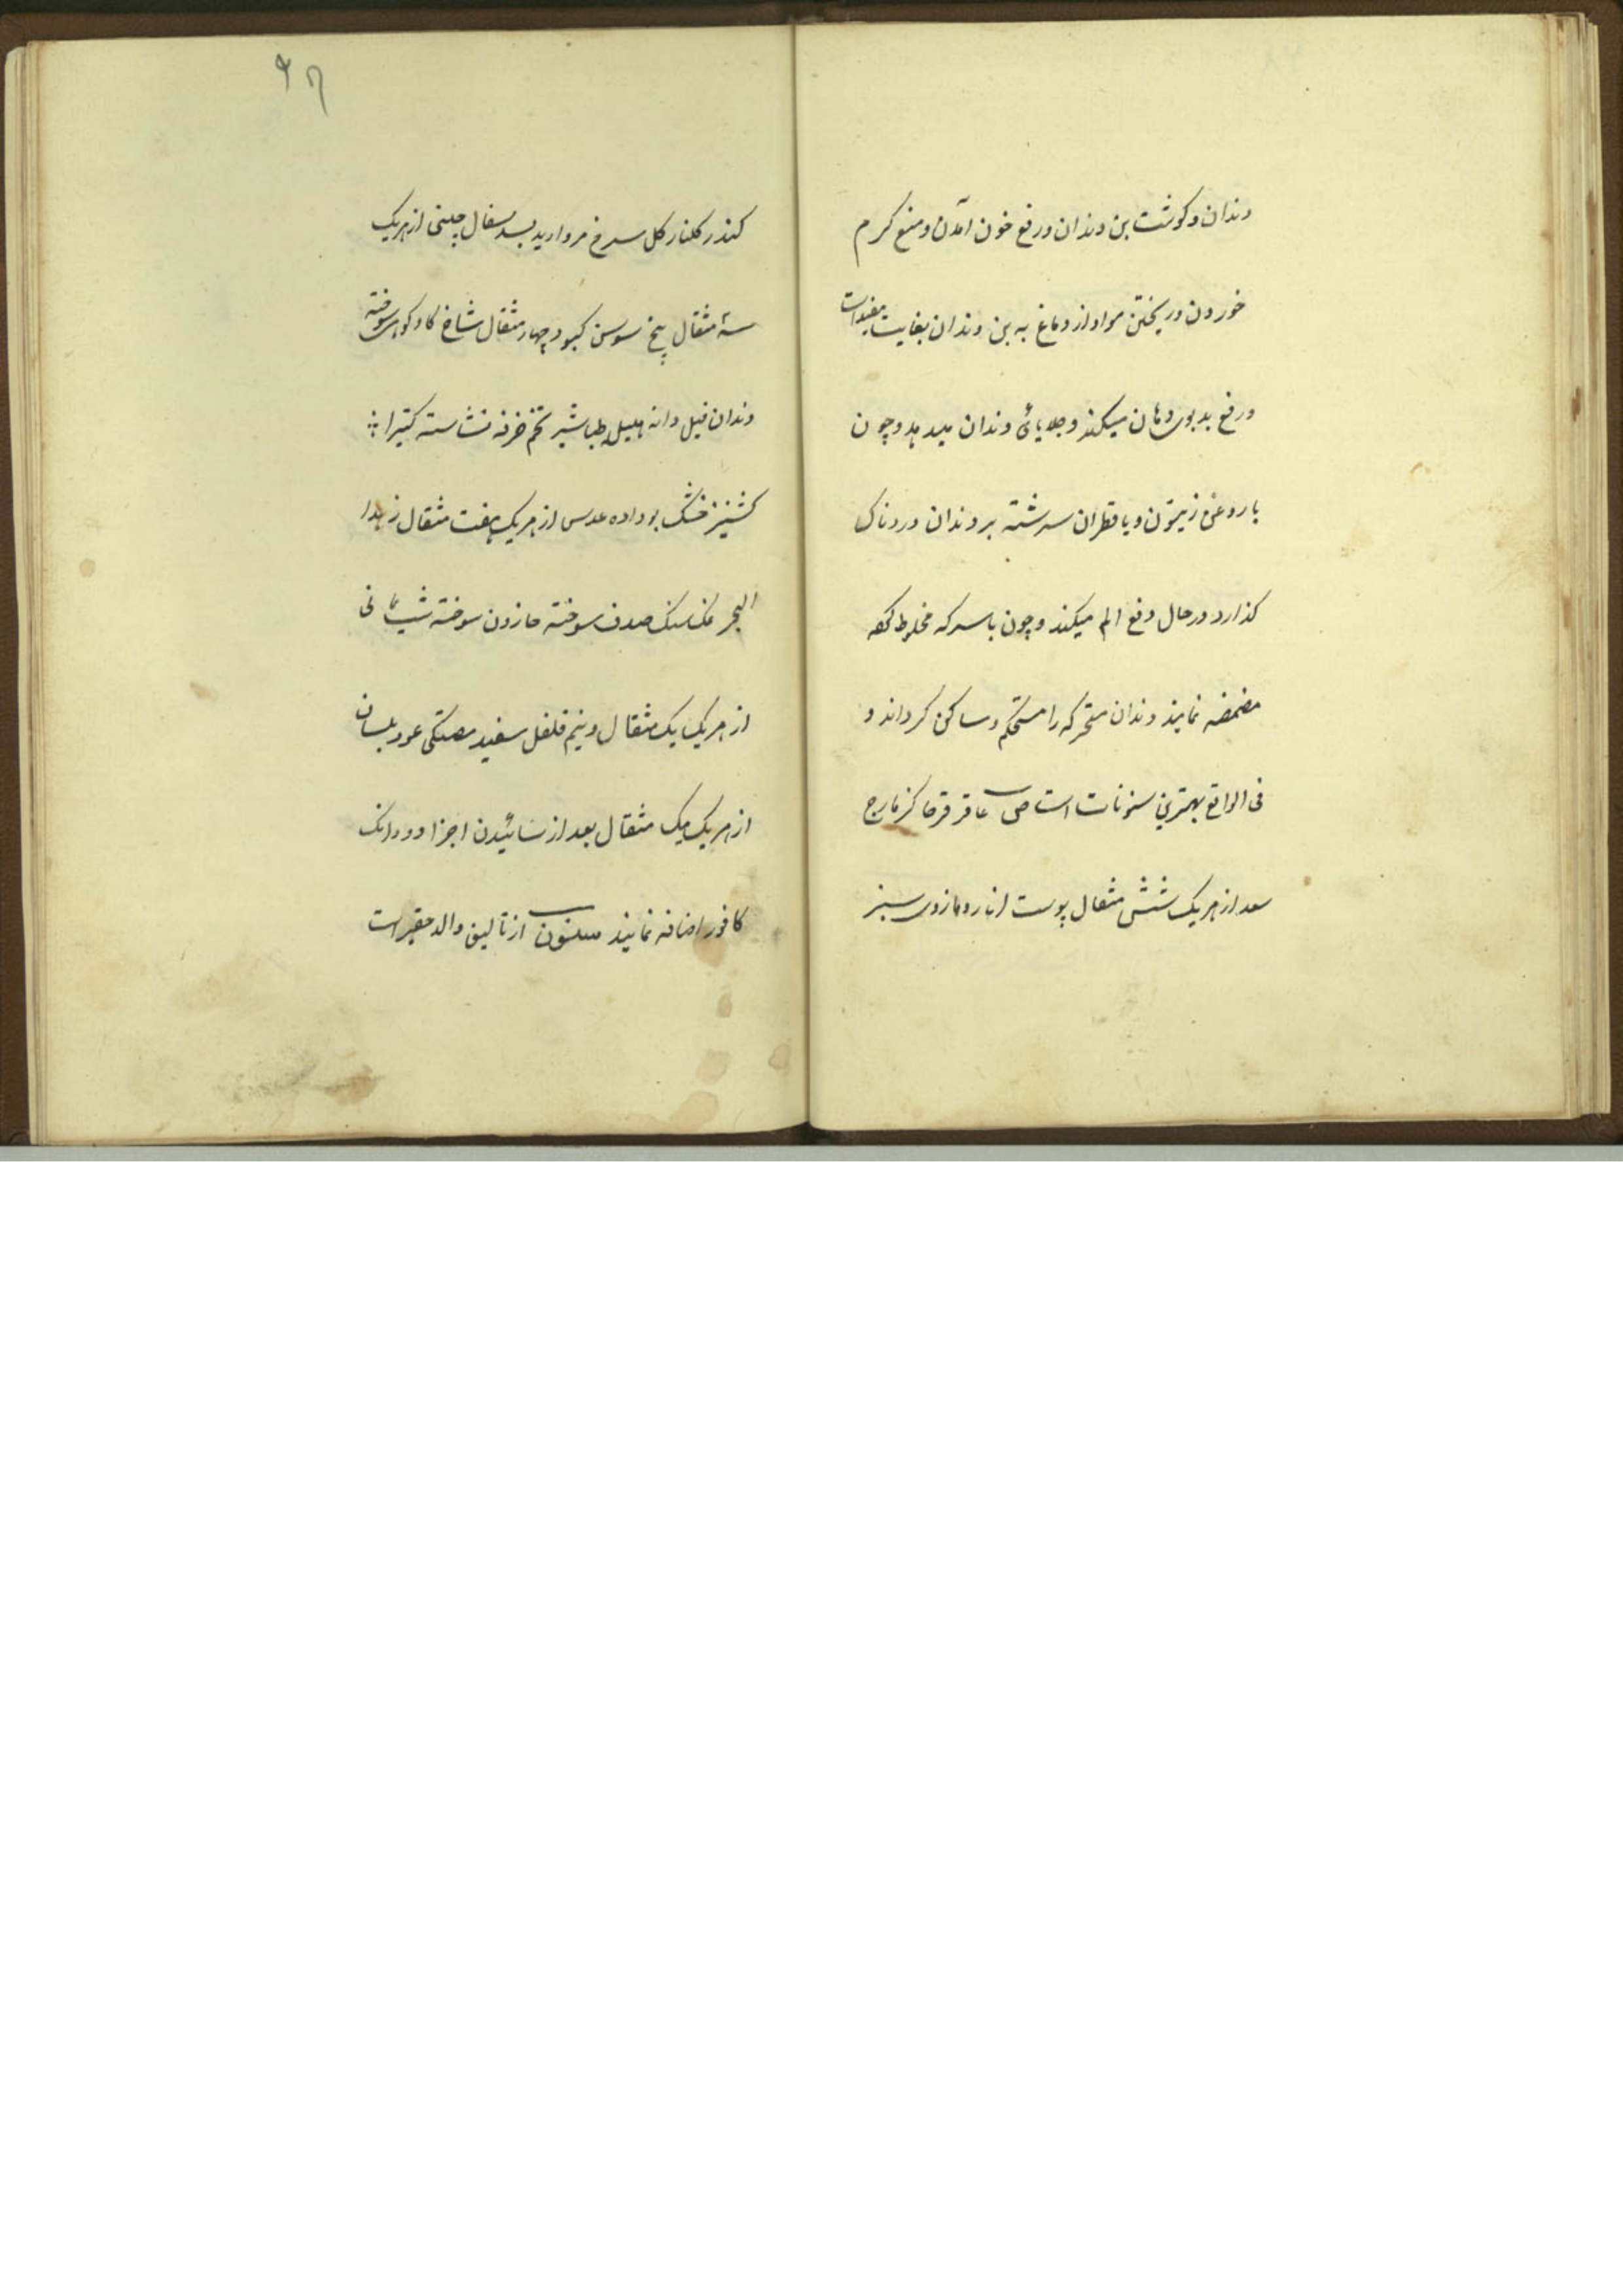 دندان و کوشت بن دندان و رفع خون آمدن و منع کرم
خوردن و ریختن مواد از دماغ به بن دندان بغایت مفید است
و رفع بدبوی دهان میکند و جلایائ دندان میدهد و چون
با روغن زیتون و یا قطران سرشته بر دندان دردناک
کذارد در حال دفع الم میکند و چون با سرکه مخلوط کرده
مضمضه نمایند دندان متحرکه را مستحکم و ساکن کرداند و
فی الواقع بهترین سنونات است ص عاقرقرحا کزمازج
سعد از هریک شش مثقال پوست انار و مازوی سبز
۴۹
کندر کلنار کل سرخ مروارید بسد سفال چینی از هریک
سه مثقال بیخ سوسن کبود چهار مثقال شاخ کاو کوهی سوخته
دندان فیل دانه هلیله طباشیر تخم خرفه نشاسته کتیرا
کشنیز خشک بو داده عدس از هریک هفت مثقال زبدا
البحر نمک سنک صدف سوخته حلزون سوخته شب یمانی
از هریک یک مثقال و نیم فلفل سفید مصتکی عود بلسان
از هریک یک مثقال بعد از سائیدن اجزا دو دانک
کافور اضافه نمایند سنون از تالیف والد حقیر است